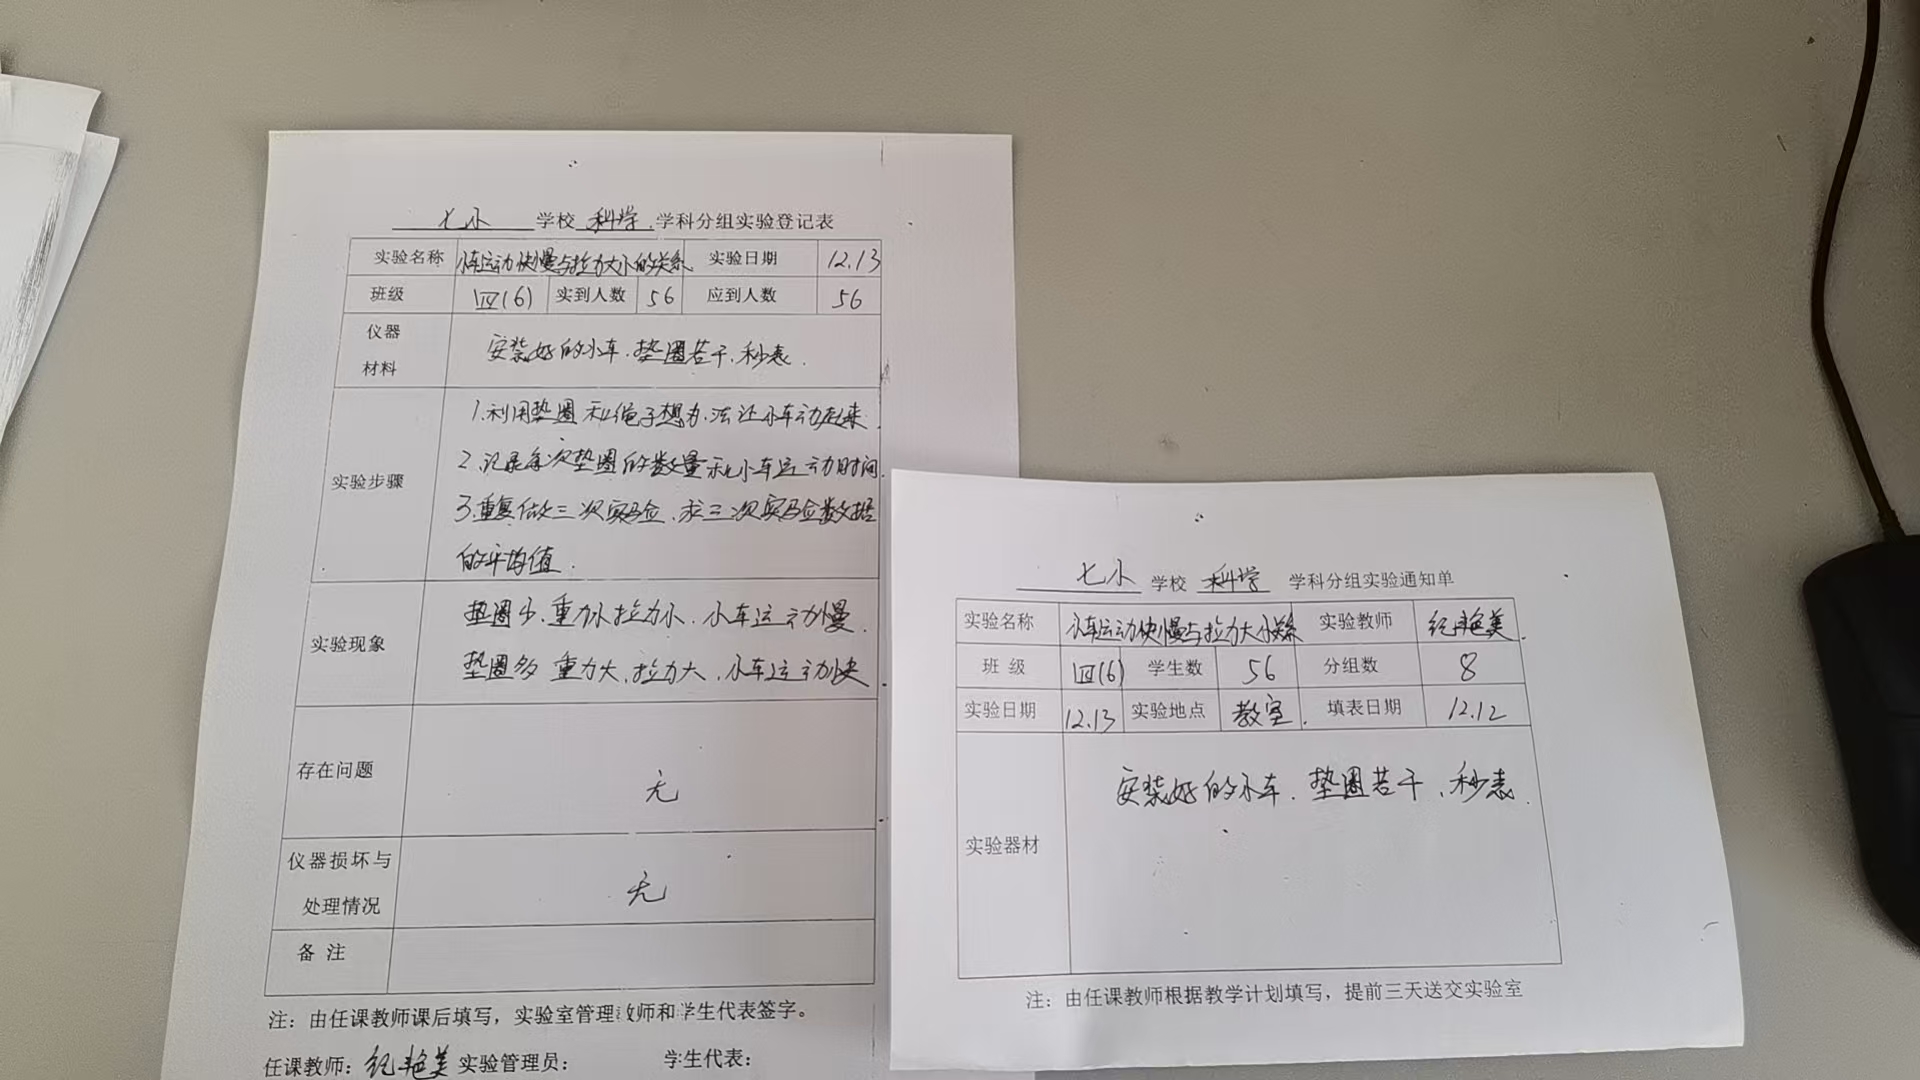 七小 学校 科学 学科分组实验登记表
实验名称 小车运动快慢与拉力大小的关系 实验日期 12.13
班级 四(6) 实到人数 56 应到人数 56
仪器
材料
安装好的小车、垫圈若干、秒表.
实验步骤
1.利用垫圈和绳子想办法让小车动起来.
2.记录每次垫圈的数量和小车运动时间.
3.重复做三次实验.求三次实验数据
的平均值.
实验现象
垫圈少.重力小拉力小.小车运动慢.
垫圈多 重力大、拉力大、小车运动快
存在问题 无
仪器损坏与
处理情况
无
备 注
注：由任课教师课后填写，实验室管理教师和学生代表签字。
任课教师：纪艳美 实验管理员： 学生代表：
七小 学校 科学 学科分组实验通知单
实验名称 小车运动快慢与拉力大小关系 实验教师 纪艳美.
班 级 四(6) 学生数 56 分组数 8
实验日期 12.13 实验地点 教室. 填表日期 12.12
实验器材 安装好的小车、垫圈若干、秒表.
注：由任课教师根据教学计划填写，提前三天送交实验室